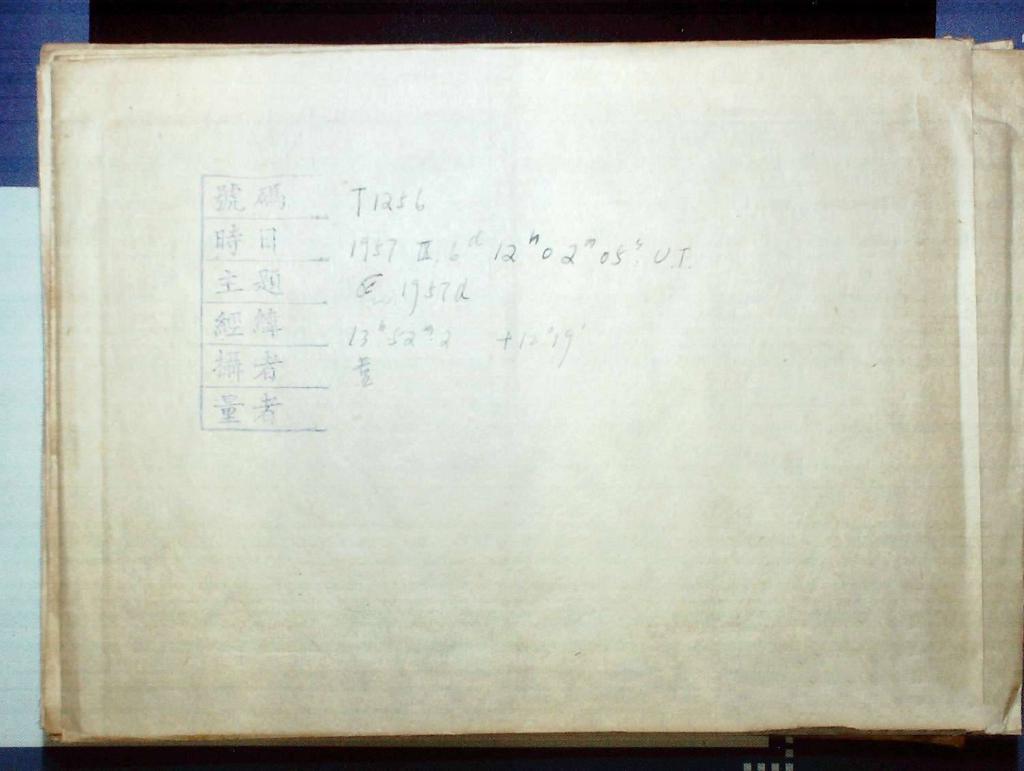 號碼 T1256
時日 1957 III. 6ᵈ 12ʰ 02ᵐ 05ˢ U.T.
主題 1957d
經緯 13ʰ52ᵐ.2 +12°19'
攝者
量者